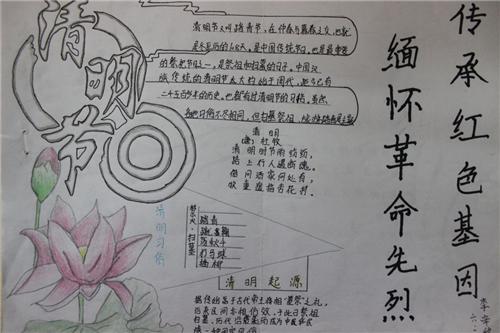 传承红色基因
缅怀革命先烈
清明节
清明节又叫踏青节，在仲春与暮春之交，也就
是冬至后的108天，是中国传统节日，也是最重要
的祭祀节日之一，是祭祖和扫墓的日子。中国汉
族传统的清明节大约始于周代，距今已有
二千五百多年的历史。
清明
唐：杜牧
清明时节雨纷纷，
路上行人欲断魂。
借问酒家何处有，
牧童遥指杏花村。
清明习俗
禁火、扫墓
踏青
荡秋千
打马球
插柳
清明起源
据传始于古代帝王将相“墓祭”之礼，
后来民间亦相仿效，于此日祭祖
扫墓，历代沿袭而成为中华民族